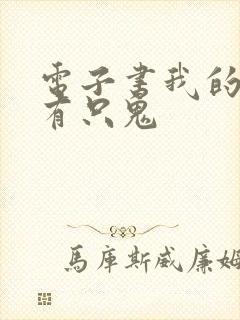 電子書我的
有只鬼
馬庫斯威廉姆